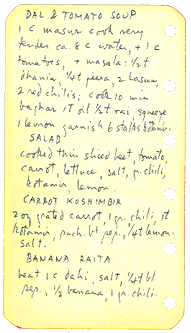 DAL & TOMATO SOUP
1 C masur cook very
tender ca. 8 C water, + 1 C
tomatoes, + masala: ½ t
dhania, ¼ t jeera, 2 lasun,
2 red chilis; cook 10 min
baghar 1T oil ½ t rai squeeze
1 lemon garnish 6 stalks kotmir.
SALAD
cooked thin sliced beet, tomato,
carrot, lettuce, salt, gr. chili,
kotmir, lemon.
CARROT KOSHIMBIR
2 og grated carrot, 1 gr. chili, 1t
kotmir, pinch bl. pep., ¼ t lemon.
salt.
BANANA RAITA
beat 1 C dahi, salt, ¼ t bl.
pep., ½ banana, 1 gr. chili.